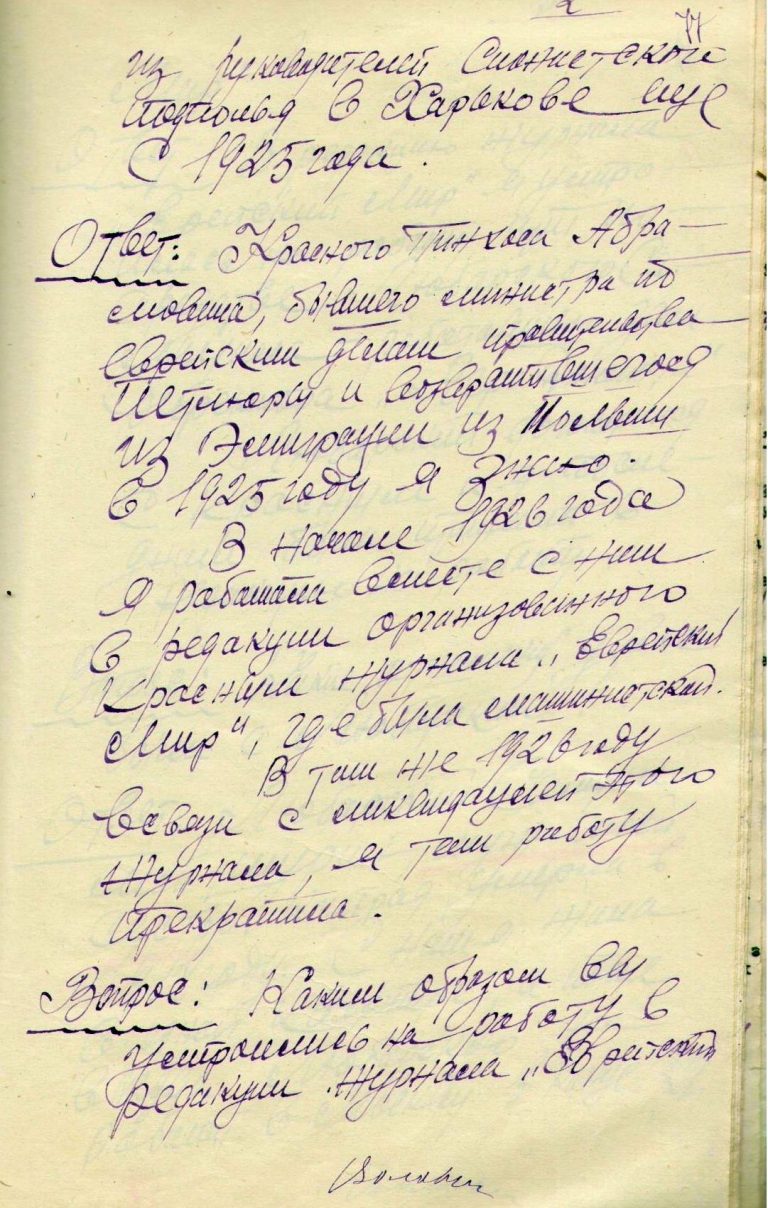 2
77
из руководителей Сионистского
подполья в Харькове еще
с 1925 года.
Ответ: Красного Пинхоса Абра-
мовича, бывшего министра по
Еврейским делам правительства
Петлюры и возвратившегося
из Эмиграции из Польши
в 1925 году я знаю.
В начале 1926 года
я работала вместе с ним
в редакции организованного
Красным журнала „Еврейский
Мир", где была машинисткой.
В том же 1926 году
всвязи с ликвидацией этого
журнала, я там работу
прекратила.
Вопрос: Каким образом Вы
устроились на работу в
редакции журнала „Еврейский